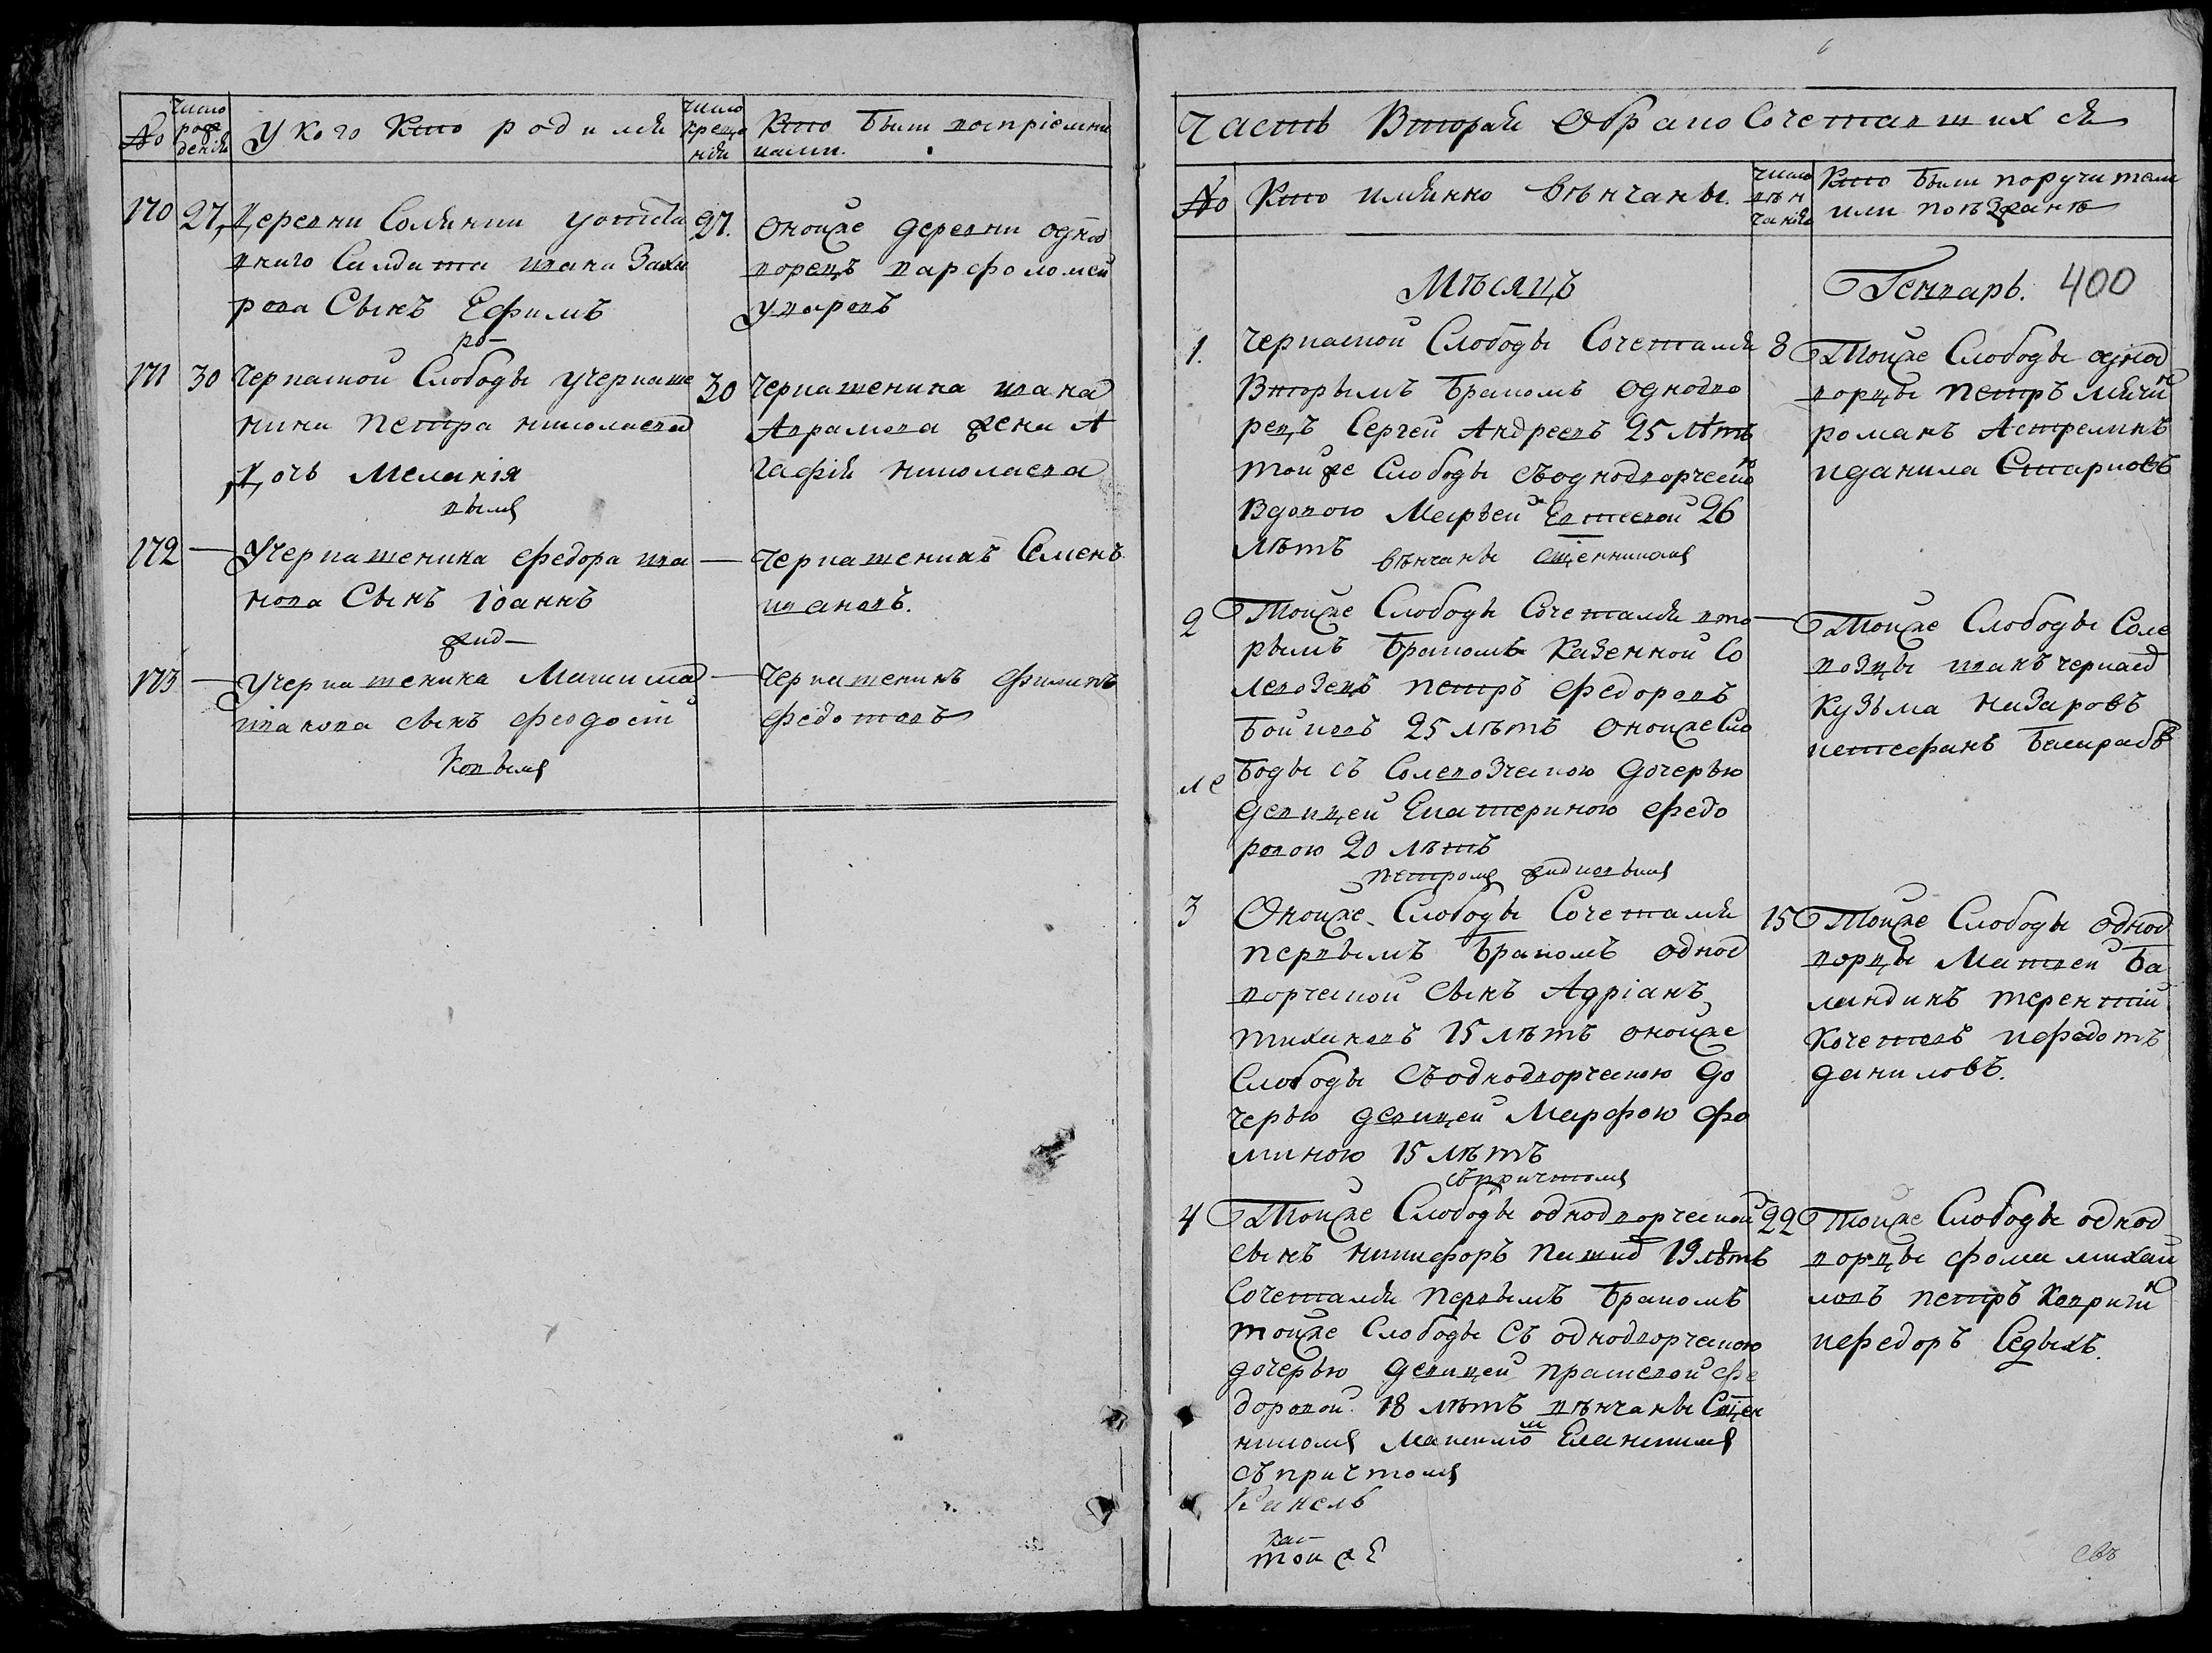 No
число рождения
У кого кто родился
число крещения
Кто были восприемниками.
170
27
Деревни Солянки у отста
вного Салдата Ивана Заха
рова Сынъ Ефимъ
27.
Онойже деревни однод
ворецъ варфоломей
уваровъ
171
30
Черкаской Слободы учеркаше
нина Петра николаева
Дочь Меланія
30
Черкашенина ивана
Аврамова жена А
гафія николаева
172
—
Учеркашенина федора ива
нова Сынъ іоаннъ
—
Черкашенинъ Семенъ
ивановъ.
173
—
Учеркашенина Максима
иванова сынъ феодосій
—
Черкашенинъ филипъ
федотовъ
Часть Вторая Обракосочетавшихся
No
Кто имянно вѣнчаны.
число вѣнчанія
Кто были поручители
или поѣзжанѣ
Мѣсяцъ
Генварь. 400
1.
Черкаской Слободы Сочетался
Вторымъ бракомъ однодво
рецъ Сергей Андреевъ 25 лѣтъ
тойже Слободы съоднодворческой
Вдовою Марьей 26
лѣтъ
вѣнчаны
8
Тойже Слободы однод
ворцы Петръ
романъ Астрелинъ
иданила
2
Тойже Слободы Сочетался вто
рымъ бракомъ Казенной Со
левозецъ петръ федоровъ
25 лѣтъ онойже Сло
боды съ Солевозческою дочерью
девицей Екатериною федо
ровою 20 лѣтъ
—
Тойже Слободы Соле
возцы иванъ
Кузьма назаровъ
3
Онойже Слободы Сочетался
первымъ бракомъ однод
ворческой сынъ Адріанъ
тихоновъ 15 лѣтъ онойже
Слободы съоднодворческою до
черью девицей Марфою фо
миною 15 лѣтъ
съпричтомъ
15
Тойже Слободы однод
ворцы Матвей Ба
ландинъ терентій
Кочетовъ ифедотъ
даниловъ.
4
Тойже Слободы однодворческой
сынъ никифоръ 19 лѣтъ
Сочетался первымъ бракомъ
тойже Слободы Съ однодворческою
дочерью девицей прасковой фе
доровой 18 лѣтъ вѣнчаны Священ
никомъ
съпричтомъ
22
Тойже Слободы однод
ворцы фома михай
ловъ петръ
ифедоръ Седыхъ.
Кинель
тойже